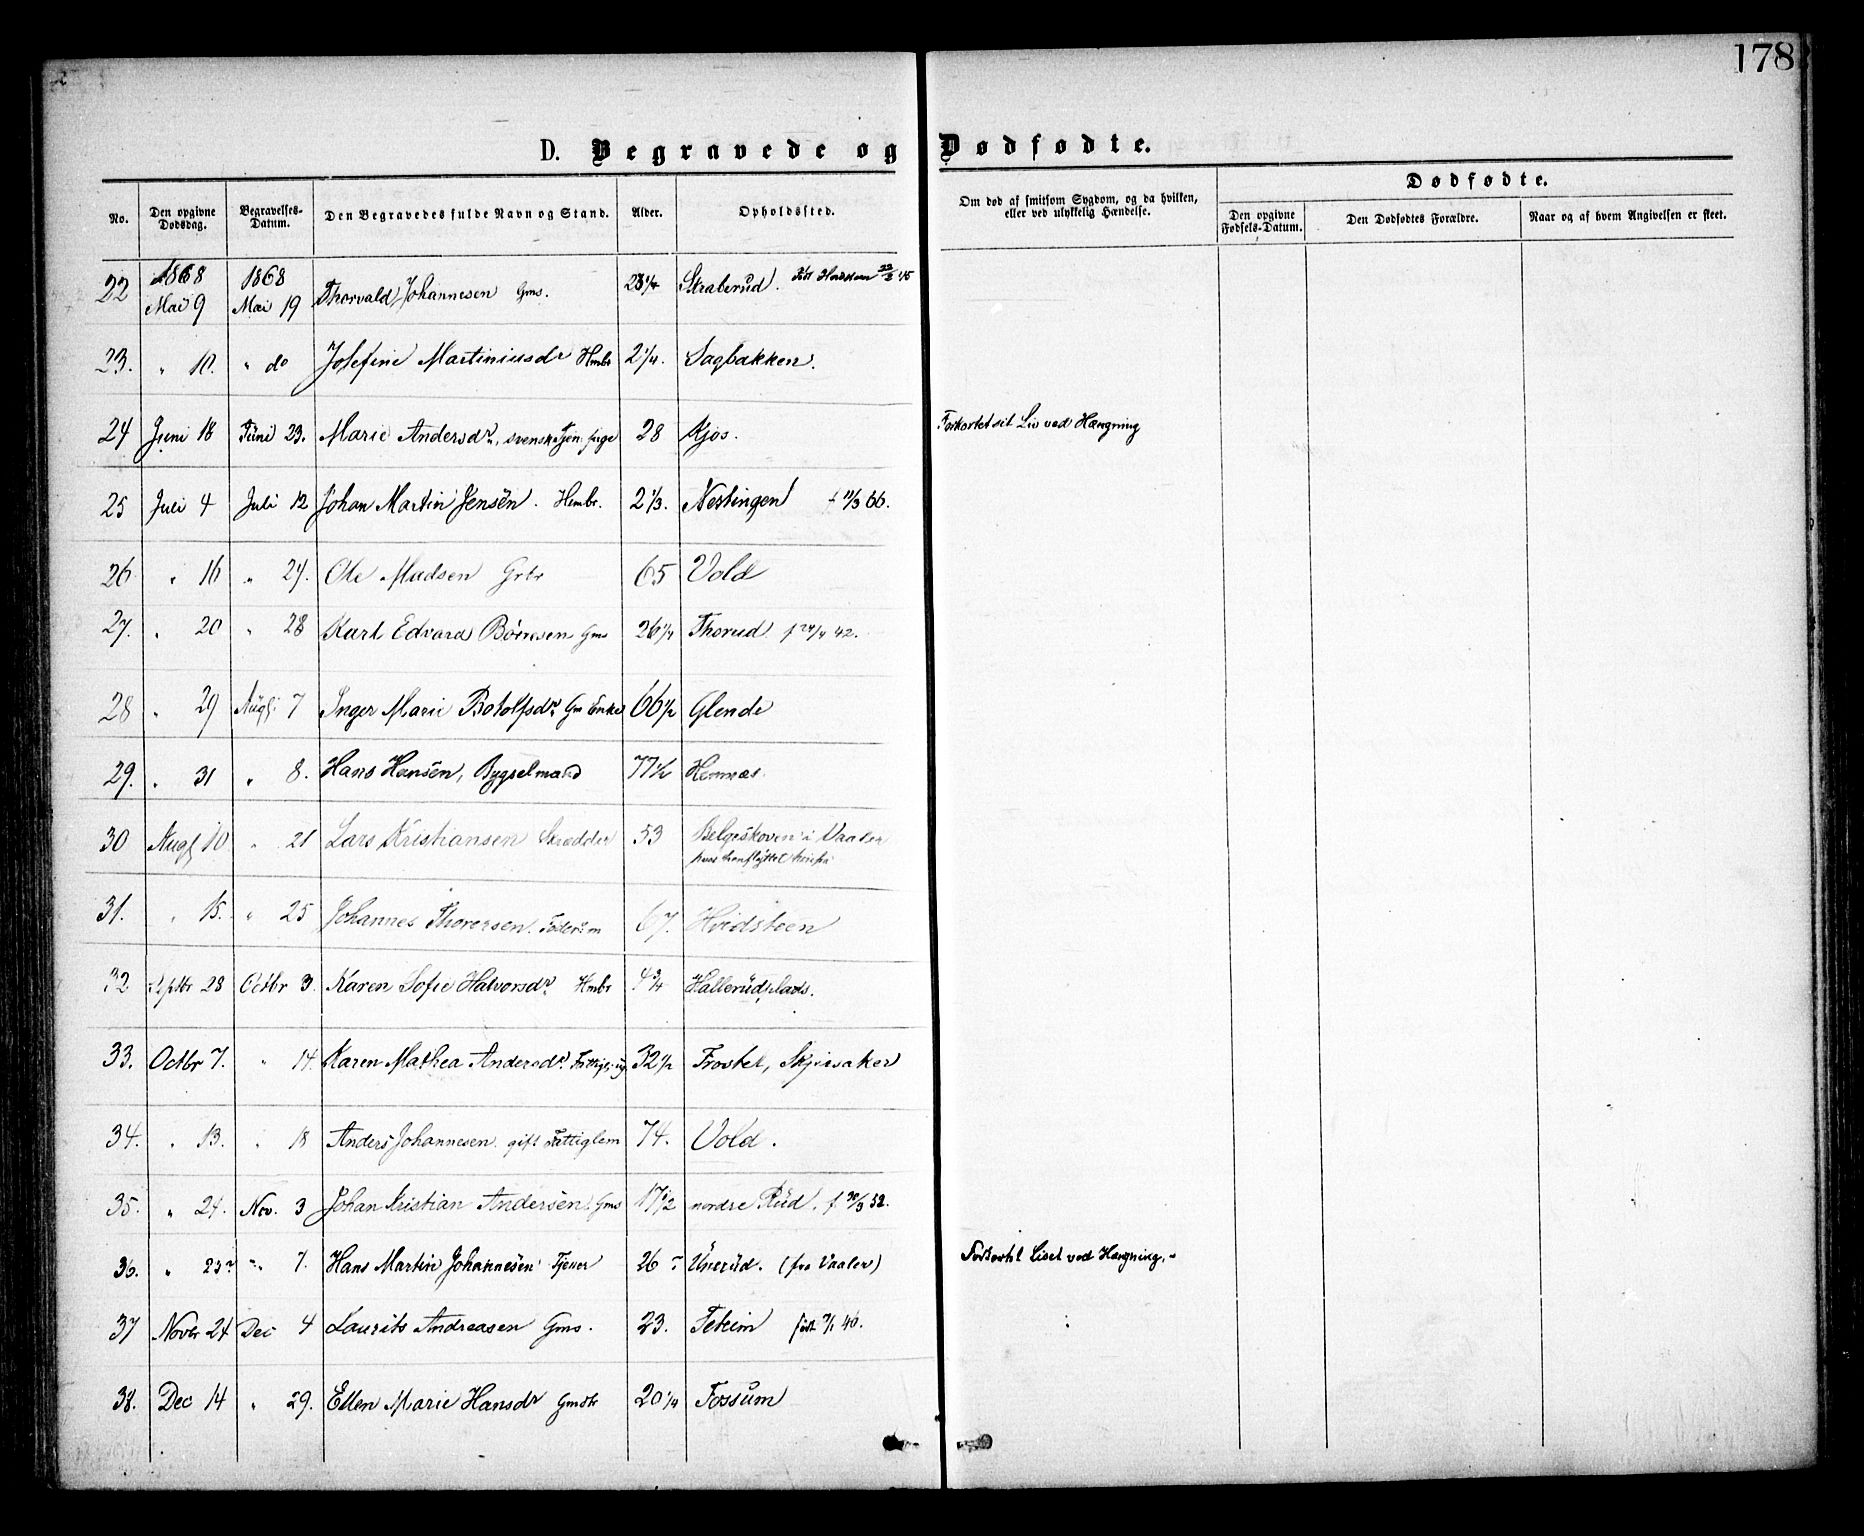 178
D. Begravede og Dødfødte.
No. Den opgivne Dødsdag. Begravelses-Datum. Den Begravedes fulde Navn og Stand. Alder. Opholdssted. Om død af smitsom Sygdom, og da hvilken, eller ved ulykkelig Hændelse. Dødfødte.
Den opgivne Fødsels-Datum. Den Dødfødtes Forældre. Naar og af hvem Angivelsen er skeet.
1868 1868
22 Mai 9 Mai 19 Thorvald Johannesen Gms. 23 1/4 Skraberud.
23. " 10. " do Josefine Martiniusdr Hmbr 2 1/4. Sagbakken.
24 Juni 18 Juni 23. Marie Andersdr, svensk Tjen. pige 28 Kjos. Forkortet sit Liv ved Hængning
25 Juli 4 Juli 12 Johan Martin Jensen. Hmbr. 2 1/3. Nestingen f 11/3 66.
26 " 16 " 24. Ole Madsen Grbr 65 Vold
27. " 20 " 28 Karl Edvard Börresen Gms 26 1/4 Thorud f 24/4 42.
28 " 29 Augs 7 Inger Marie Botolfsdr. Gm Enke 66 1/2 Glende
29. " 31 " 8. Hans Hansen, Bygselmand 77 1/2 Hemnæs.
30 Augs 10 " 21 Lars Kristiansen Skrædder 53 Belgeskoven i Vaaler
31. " 15. " 25 Johannes Thoresen. Föderm 67. Hvidsteen
32 Septbr 28 Octbr 3. Karen Sofie Halvorsdr. Hmbr 4 3/4 Hallerudplads.
33. Octbr 7. " 14. Karen Mathea Andersdr. 32 1/2 Froster, Skjersaker
34. " 13. " 18 Anders Johannesen gift Fattiglem 74. Vold.
35. " 24. Nov. 3 Johan Kristian Andersen. Gms 17 1/2 nordre Rud. f 30/3 52.
36. " 23? " 7. Hans Martin Johannesen Tjener 26 Unerud. (fra Vaaler) Forkortet Livet ved Hængning.
37 Novbr 24 Dec 4 Laurits Andreasen Gms. 23. Teteim född 7/1 46.
38. Dec 14 " 29. Ellen Marie Hansdr Gmdtr 20 1/4 Fossum